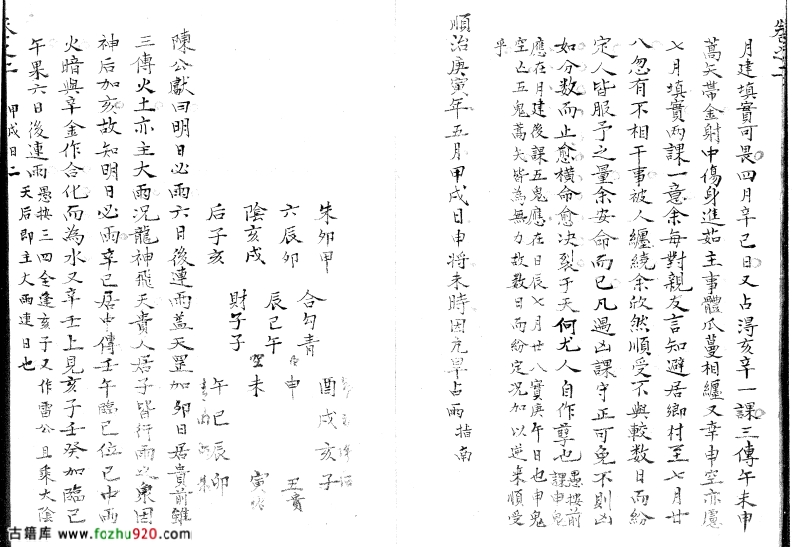 月建填實可畏四月辛巳日又占得亥辛一課三傳午未申
蒿矢帶金射中傷身進茹主事體瓜蔓相纏又幸申空亦慮
七月填實兩課一意余每對親友言知避居鄉村至七月廿
八忽有不相干事被人纏繞余欣然順受不與較數日而紛
定人皆服予之量余安命而已凡遇凶課守正可免不則凶
如分数而止愈橫命愈决裂于天何尤人自作孽也愚按前課申鬼
應在月建後課五鬼應在日辰七月廿八實庚午日也申鬼
空亡五鬼蒿矢皆為無力故数日而紛定况加以逆来順受
乎
順治庚寅年五月甲戌日申將未時因亢旱占雨 指南
朱卯甲
六辰卯
陰亥戌
后子亥
合勾青
辰巳午
財子子
申
空未
酉戌亥子
午巳辰卯
寅
陳公獻曰明日必雨六日後連雨蓋天罡加卯日居貴前雖
三傳火土亦主大雨况龍神飛天貴人居子皆行雨之象因
神后加亥故知明日必雨辛巳居中傳壬午臨巳位巳中丙
火暗與辛金作合化而為水又辛壬上見亥子壬癸加臨巳
午果六日後連雨愚按三四全逢亥子又作雷公且乘太陰
天后即主大雨連日也
甲戌日二
卷之二
古籍库 www.fozhu920.com